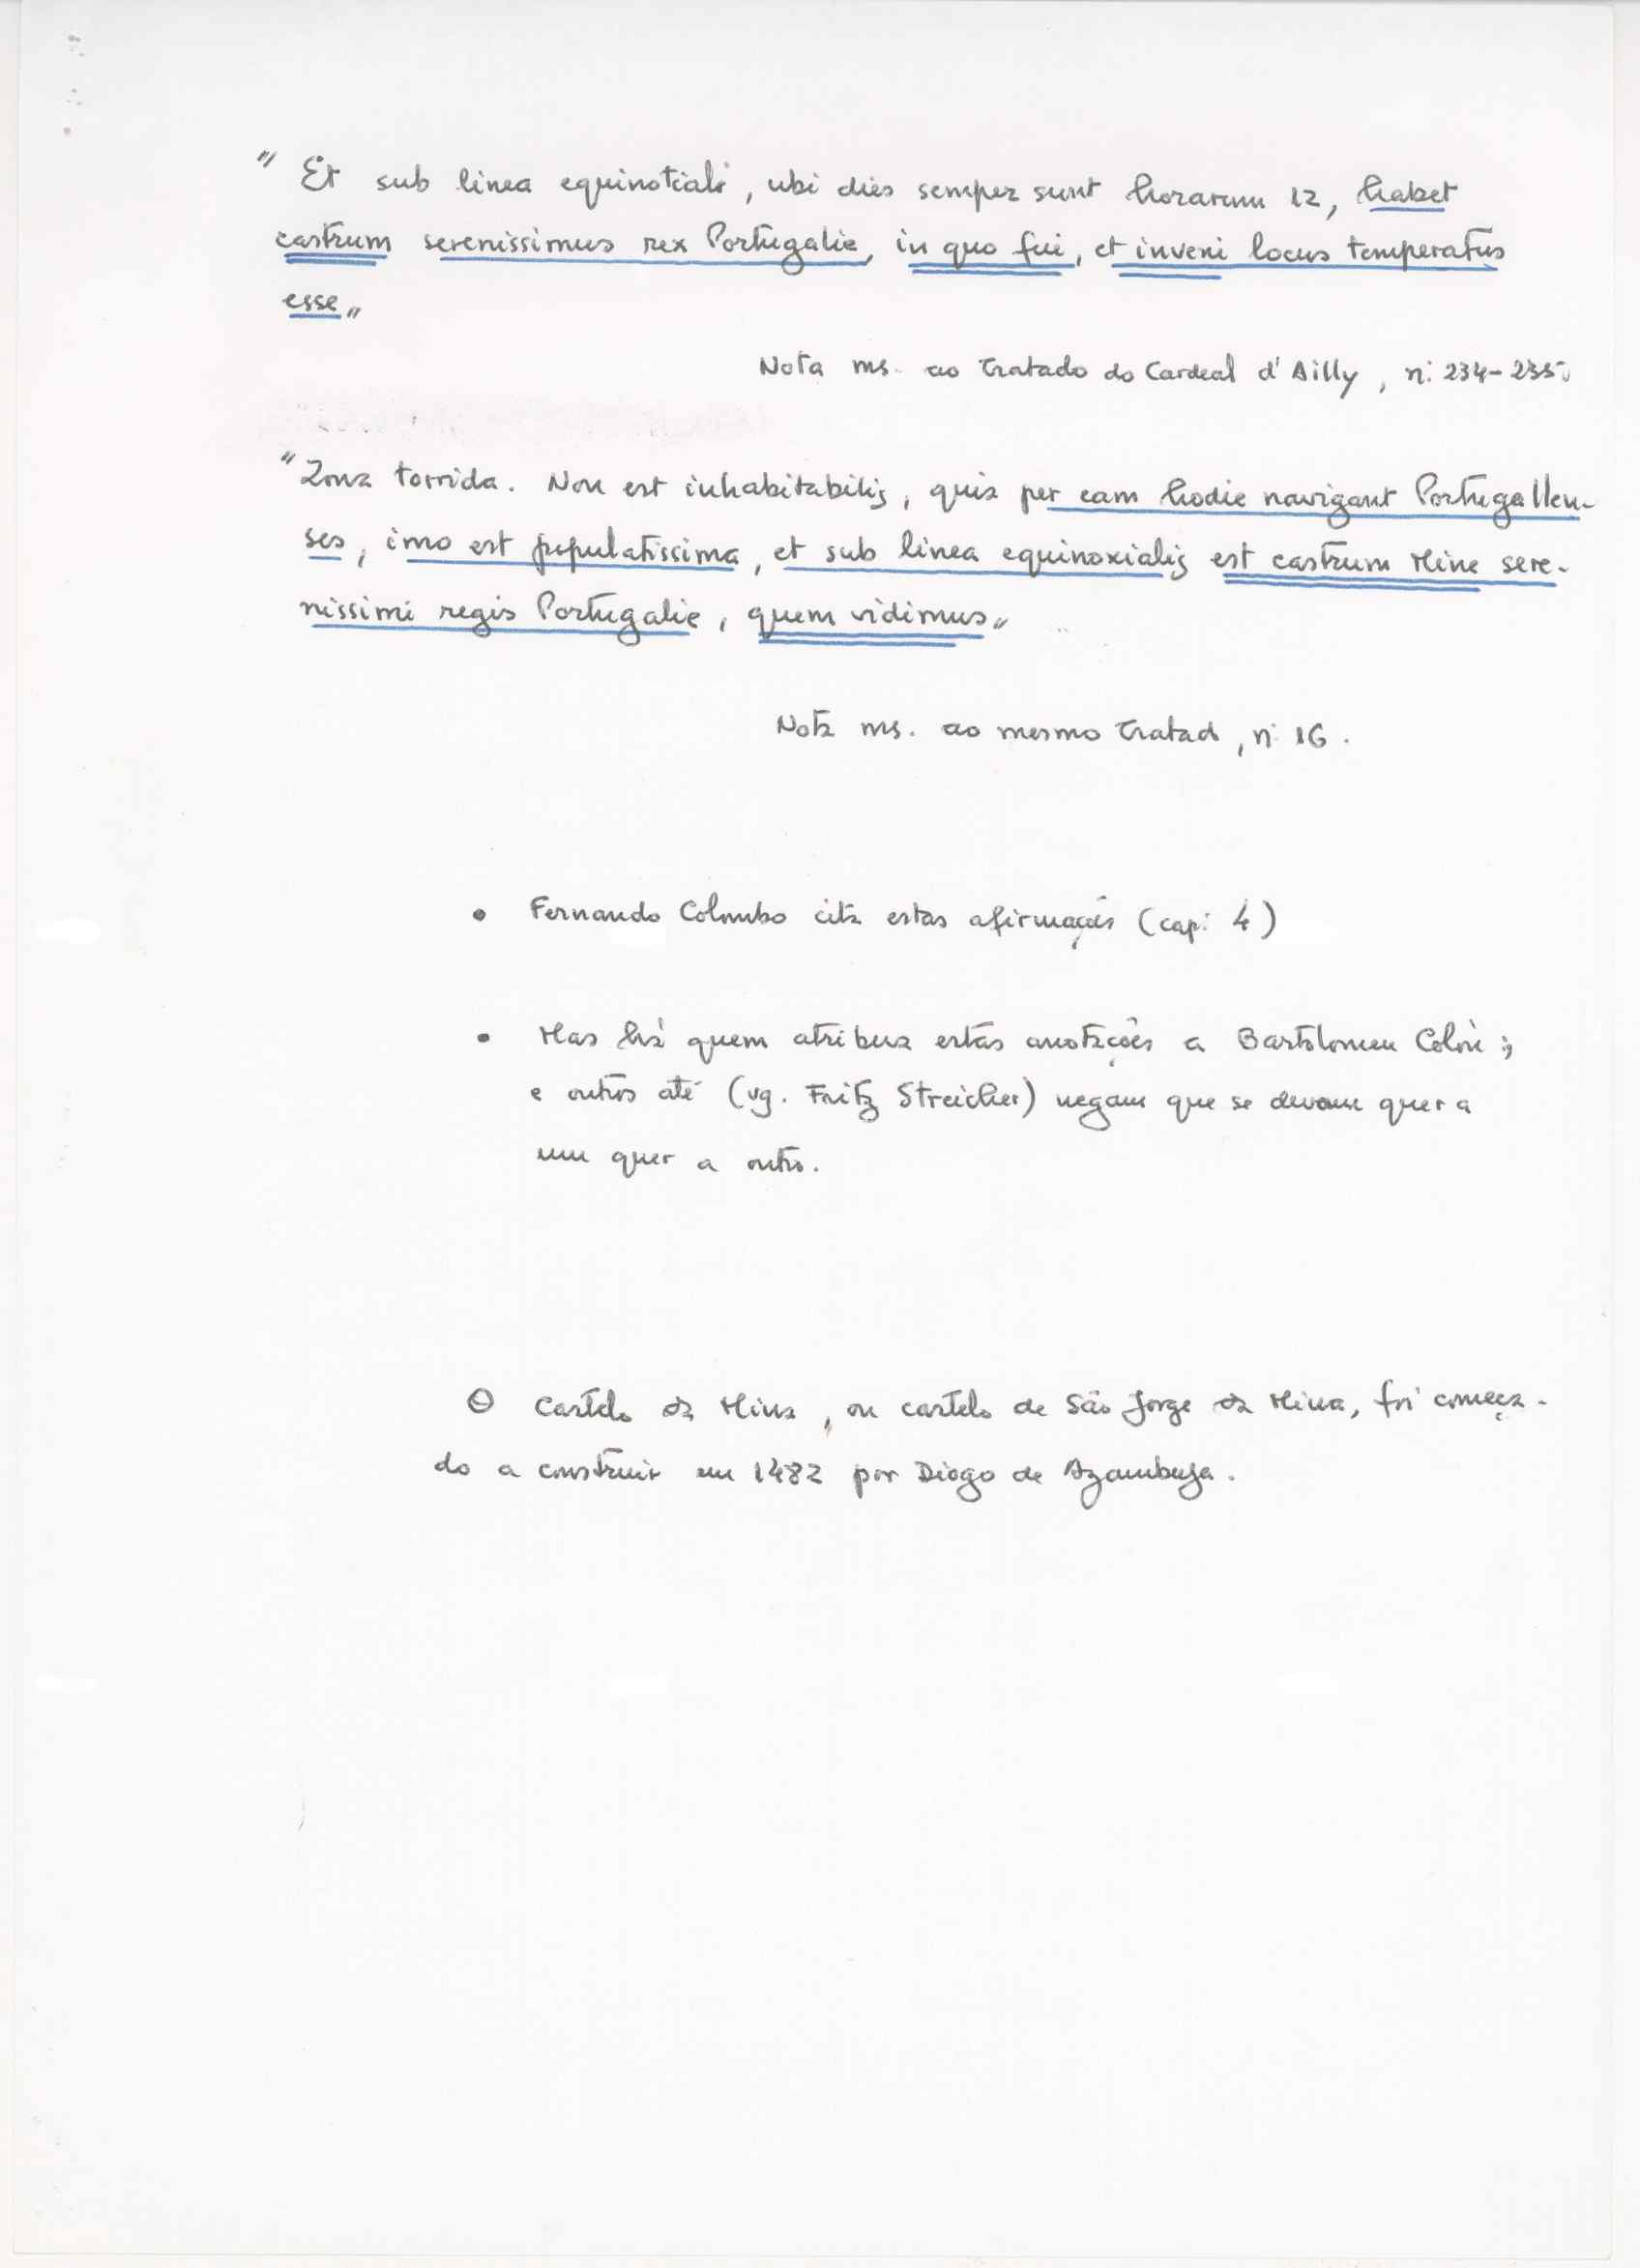 " Et sub linea equinotiali, ubi dies semper sunt horarum 12, habet
castrum serenissimus rex Portugalie, in quo fui, et inveni locus temperatus
esse "
Nota ms. ao tratado do Cardeal d'Ailly, n. 234-235.
"Zona torrida. Non est inhabitabilis, quia per eam hodie navigant Portugallen-
ses, imo est populatissima, et sub linea equinoxialis est castrum Mine sere-
nissimi regis Portugalie, quem vidimus"
Nota ms. ao mesmo tratado, n. 16.
• Fernando Colombo cita estas afirmações (cap. 4)
• Mas há quem atribua estas anotações a Bartolomeu Colón;
e outros até (vg. Fritz Streicher) negam que se devam quer a
um quer a outro.
O Castelo da Mina, ou castelo de São Jorge da Mina, foi começa-
do a construir em 1482 por Diogo de Azambuja.